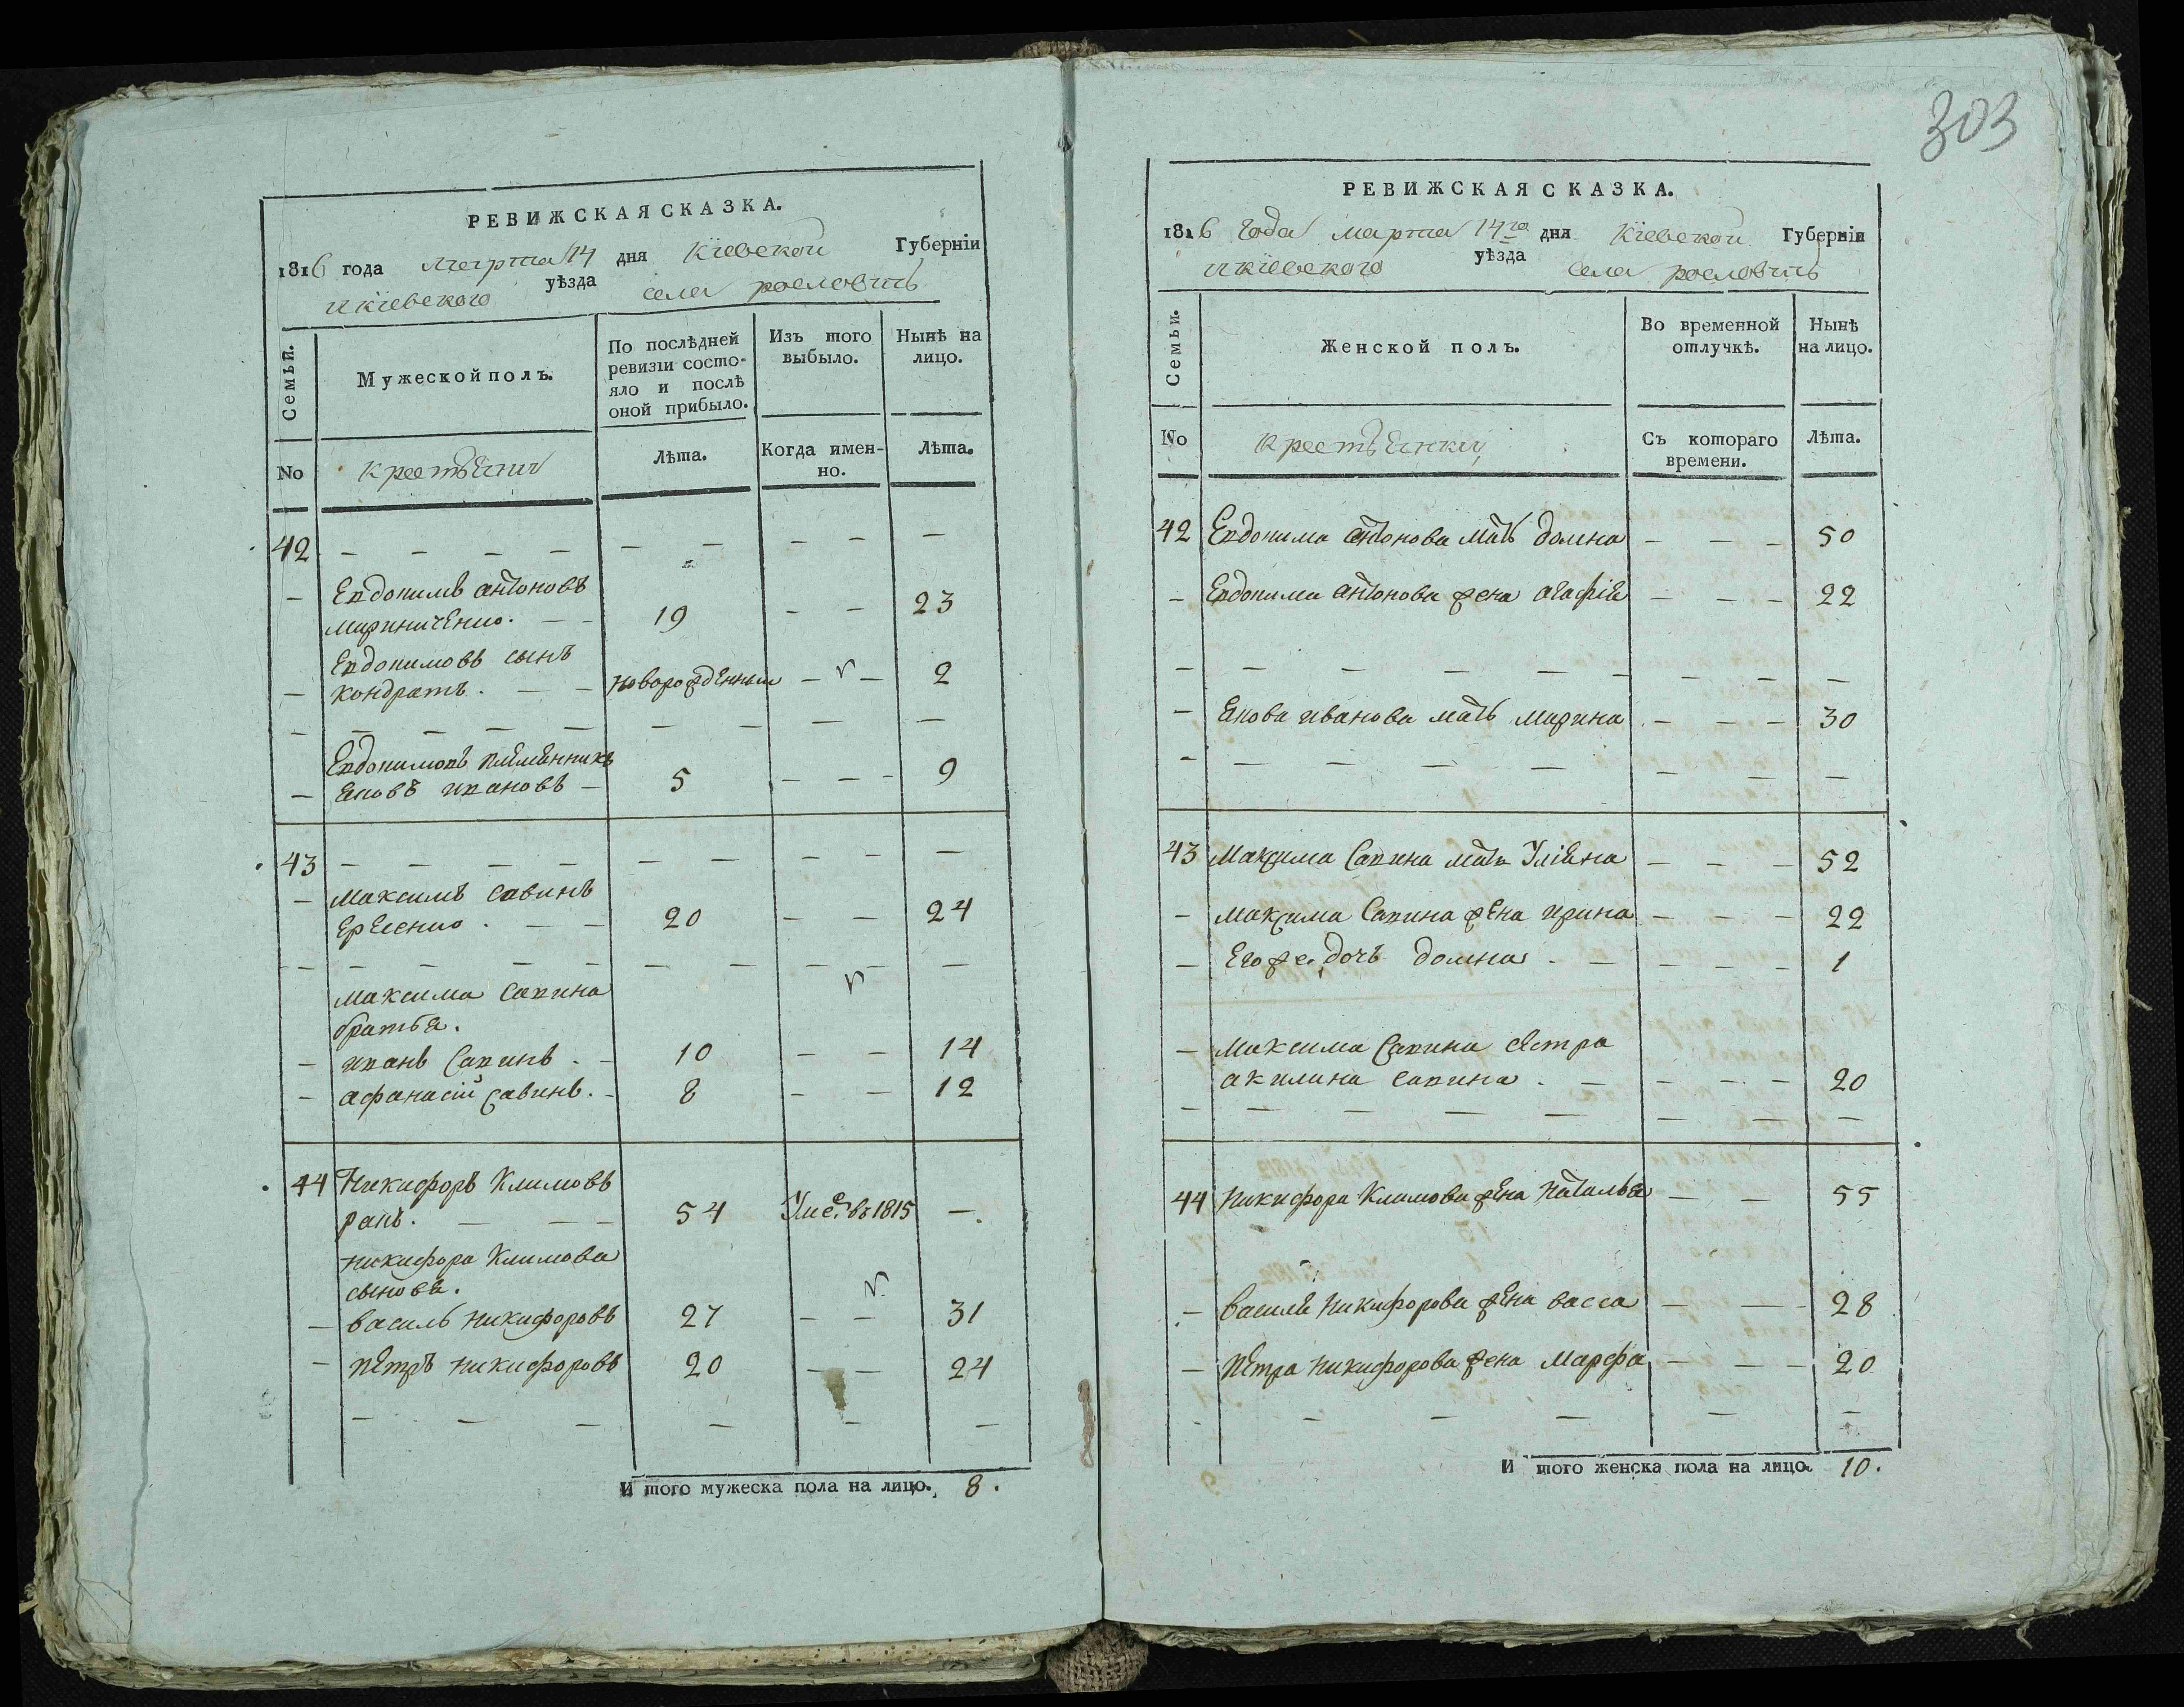 303
РЕВИЖСКАЯ СКАЗКА.
1816 года марта 14 дня Кіевской Губерніи
и кіевского уѣзда села рословить
Семьи.
Мужеской полъ.
По послѣдней ревизіи состояло и послѣ оной прибыло.
Изъ того выбыло.
Нынѣ на лицо.
No
крестьяни
Лѣта.
Когда именно.
Лѣта.
42 — — — — — — — — —
— Евдокимъ антоновъ
мариниченко. — — 19 — — 23
Евдокимовъ сынъ
— кондратъ. — — новорожденный — — 2
— — — — — — — — —
Евдокимовъ племянникъ
— яковъ ивановъ — 5 — — — 9
43 — — — — — — — — —
— Максимъ савинъ
— — 20 — — 24
— — — — — — — — — —
максима савина
братья.
— иванъ Савинъ. — 10 — — 14
— афанасій савинъ. — 8 — — 12
44 Никифоръ Климовъ
. — — — 54 Уме. въ 1815 —.
никифора Климова
сыновя.
— василь никифоровъ 27 — — 31
— петръ никифоровъ 20 — — 24
— — — — — —
И того мужеска пола на лицо. 8.
РЕВИЖСКАЯ СКАЗКА.
1816 года марта 14го дня Кіевской Губерніи
и кіевского уѣзда села рословить
Семьи.
Женской полъ.
Во временной отлучкѣ.
Нынѣ на лицо.
No
крестьянки
Съ котораго времени.
Лѣта.
42 Евдокима антонова мать домна — — — 50
— Евдокима антонова жена агафія — — — 22
— — — — — — — — —
— якова иванова мать марина — — — 30
— — — — — — — —
43 Максима Савина мать Уліяна — — — 52
— максима Савина жена ирина — — — 22
— Его же дочъ домна. — — — — 1
— максима Савина сестра
акилина савина. — — — — 20
— — — — — — — —
44 никифора Климова жена наталья — — 55
— василя никифорова жена васса — — — 28
— петра никифорова жена марфа — — — 20
— — — — —
И того женска пола на лицо 10.